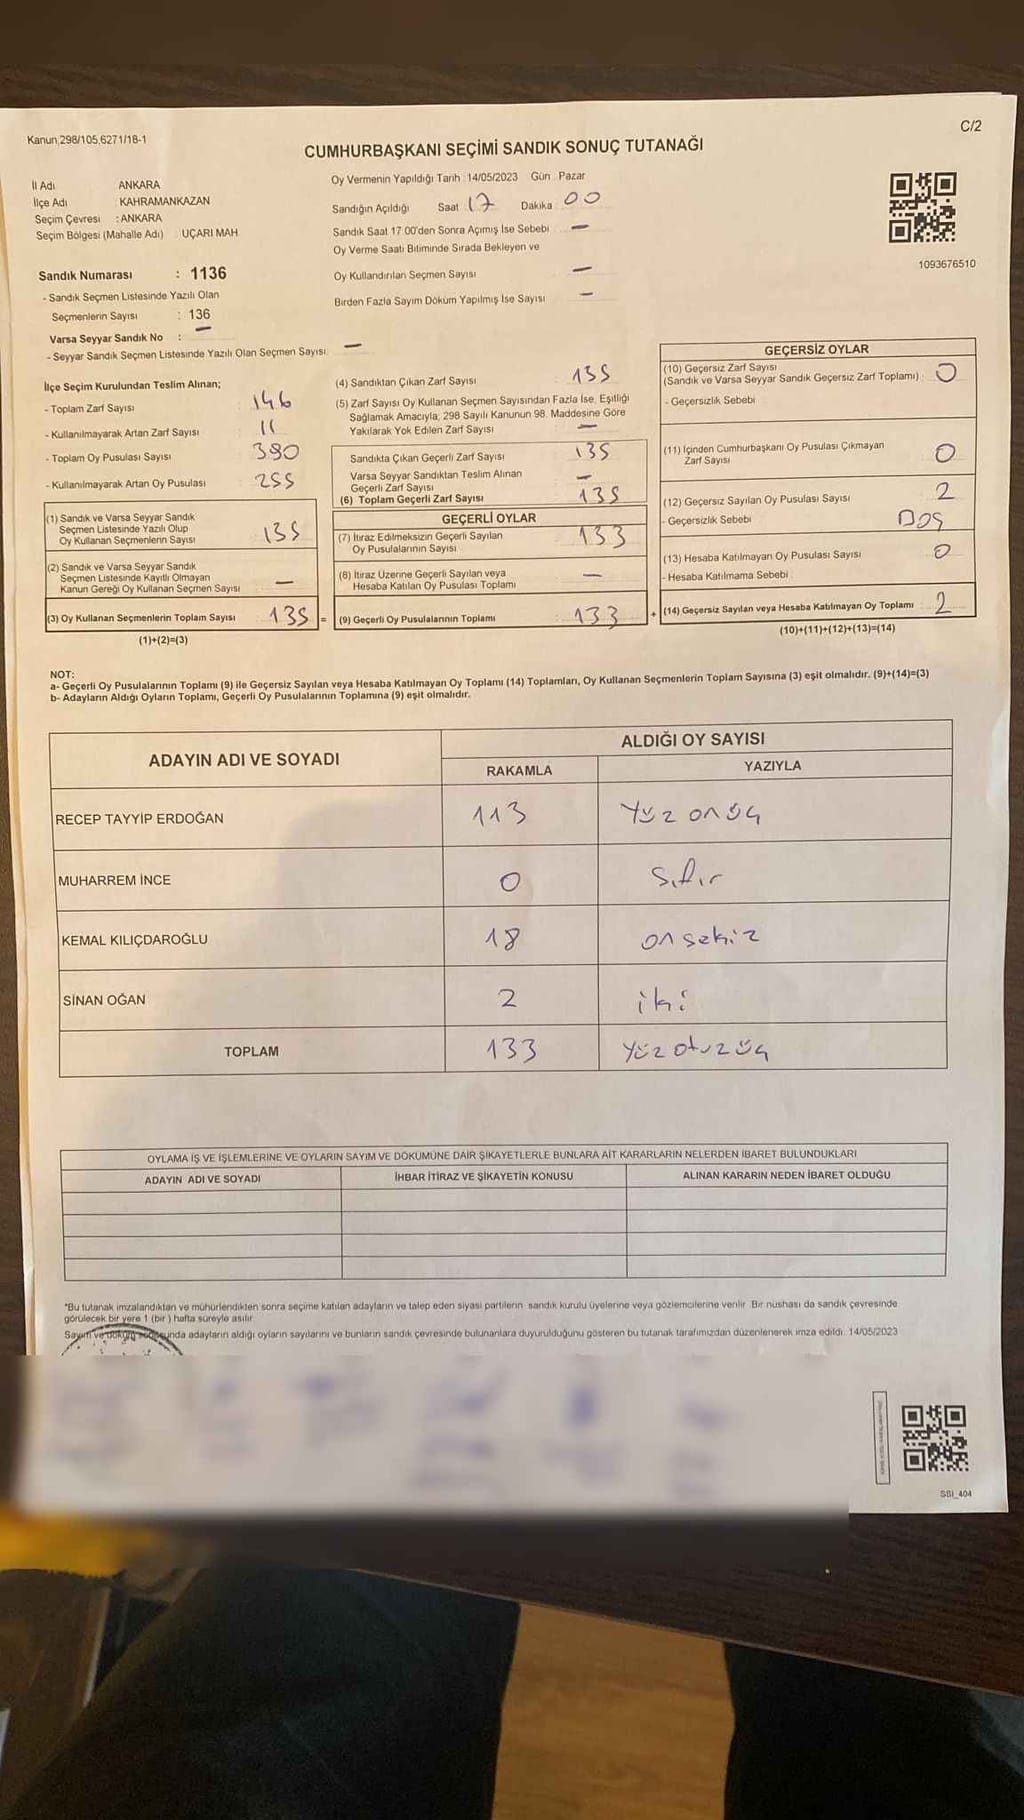 Kanun,298/105,6271/18-1
C/2
CUMHURBAŞKANI SEÇİMİ SANDIK SONUÇ TUTANAĞI
İl Adı ANKARA
İlçe Adı : KAHRAMANKAZAN
Seçim Çevresi : ANKARA
Seçim Bölgesi (Mahalle Adı) UÇARI MAH
Sandık Numarası : 1136
- Sandık Seçmen Listesinde Yazılı Olan
Seçmenlerin Sayısı : 136
Varsa Seyyar Sandık No : —
- Seyyar Sandık Seçmen Listesinde Yazılı Olan Seçmen Sayısı: —
Oy Vermenin Yapıldığı Tarih : 14/05/2023 Gün : Pazar
Sandığın Açıldığı Saat 17 Dakika : 00
Sandık Saat 17.00'den Sonra Açımış İse Sebebi : —
Oy Verme Saati Bitiminde Sırada Bekleyen ve
Oy Kullandırılan Seçmen Sayısı —
Birden Fazla Sayım Döküm Yapılmış İse Sayısı : —
1093676510
İlçe Seçim Kurulundan Teslim Alınan;
- Toplam Zarf Sayısı 146
- Kullanılmayarak Artan Zarf Sayısı 11
- Toplam Oy Pusulası Sayısı 390
- Kullanılmayarak Artan Oy Pusulası 255
(1) Sandık ve Varsa Seyyar Sandık
Seçmen Listesinde Yazılı Olup
Oy Kullanan Seçmenlerin Sayısı 135
(2) Sandık ve Varsa Seyyar Sandık
Seçmen Listesinde Kayıtlı Olmayan
Kanun Gereği Oy Kullanan Seçmen Sayısı —
(3) Oy Kullanan Seçmenlerin Toplam Sayısı 135 =
(1)+(2)=(3)
(4) Sandıktan Çıkan Zarf Sayısı : 135
(5) Zarf Sayısı Oy Kullanan Seçmen Sayısından Fazla İse, Eşitliği
Sağlamak Amacıyla; 298 Sayılı Kanunun 98. Maddesine Göre
Yakılarak Yok Edilen Zarf Sayısı —
Sandıkta Çıkan Geçerli Zarf Sayısı : 135
Varsa Seyyar Sandıktan Teslim Alınan
Geçerli Zarf Sayısı —
(6) Toplam Geçerli Zarf Sayısı : 135
GEÇERLİ OYLAR
(7) İtiraz Edilmeksizin Geçerli Sayılan
Oy Pusulalarının Sayısı : 133
(8) İtiraz Üzerine Geçerli Sayılan veya
Hesaba Katılan Oy Pusulası Toplamı : —
(9) Geçerli Oy Pusulalarının Toplamı : 133 +
GEÇERSİZ OYLAR
(10) Geçersiz Zarf Sayısı
(Sandık ve Varsa Seyyar Sandık Geçersiz Zarf Toplamı) : 0
- Geçersizlik Sebebi
(11) İçinden Cumhurbaşkanı Oy Pusulası Çıkmayan
Zarf Sayısı 0
(12) Geçersiz Sayılan Oy Pusulası Sayısı 2
- Geçersizlik Sebebi Boş
(13) Hesaba Katılmayan Oy Pusulası Sayısı 0
- Hesaba Katılmama Sebebi
(14) Geçersiz Sayılan veya Hesaba Katılmayan Oy Toplamı : 2
(10)+(11)+(12)+(13)=(14)
NOT:
a- Geçerli Oy Pusulalarının Toplamı (9) ile Geçersiz Sayılan veya Hesaba Katılmayan Oy Toplamı (14) Toplamları, Oy Kullanan Seçmenlerin Toplam Sayısına (3) eşit olmalıdır. (9)+(14)=(3)
b- Adayların Aldığı Oyların Toplamı, Geçerli Oy Pusulalarının Toplamına (9) eşit olmalıdır.
ADAYIN ADI VE SOYADI
ALDIĞI OY SAYISI
RAKAMLA YAZIYLA
RECEP TAYYİP ERDOĞAN 113 Yüz onüç
MUHARREM İNCE 0 sıfır
KEMAL KILIÇDAROĞLU 18 on sekiz
SİNAN OĞAN 2 iki
TOPLAM 133 Yüz otuz üç
OYLAMA İŞ VE İŞLEMLERİNE VE OYLARIN SAYIM VE DÖKÜMÜNE DAİR ŞİKAYETLERLE BUNLARA AİT KARARLARIN NELERDEN İBARET BULUNDUKLARI
ADAYIN ADI VE SOYADI İHBAR İTİRAZ VE ŞİKAYETİN KONUSU ALINAN KARARIN NEDEN İBARET OLDUĞU
*Bu tutanak imzalandıktan ve mühürlendikten sonra seçime katılan adayların ve talep eden siyasi partilerin sandık kurulu üyelerine veya gözlemcilerine verilir. Bir nüshası da sandık çevresinde
görülecek bir yere 1 (bir ) hafta süreyle asılır.
Sayım ve döküm sonucunda adayların aldığı oyların sayılarını ve bunların sandık çevresinde bulunanlara duyurulduğunu gösteren bu tutanak tarafımızdan düzenlenerek imza edildi. 14/05/2023
SSI_404